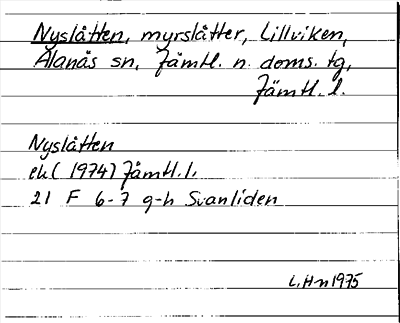 Nyslåtten, myrslåtter, Lillviken,
Alanäs sn, Jämtl. n. doms. tg,
Jämtl. l.
Nyslåtten
ek (1974) Jämtl. l.
21 F 6-7 g-h Svanliden
L. H-n 1975